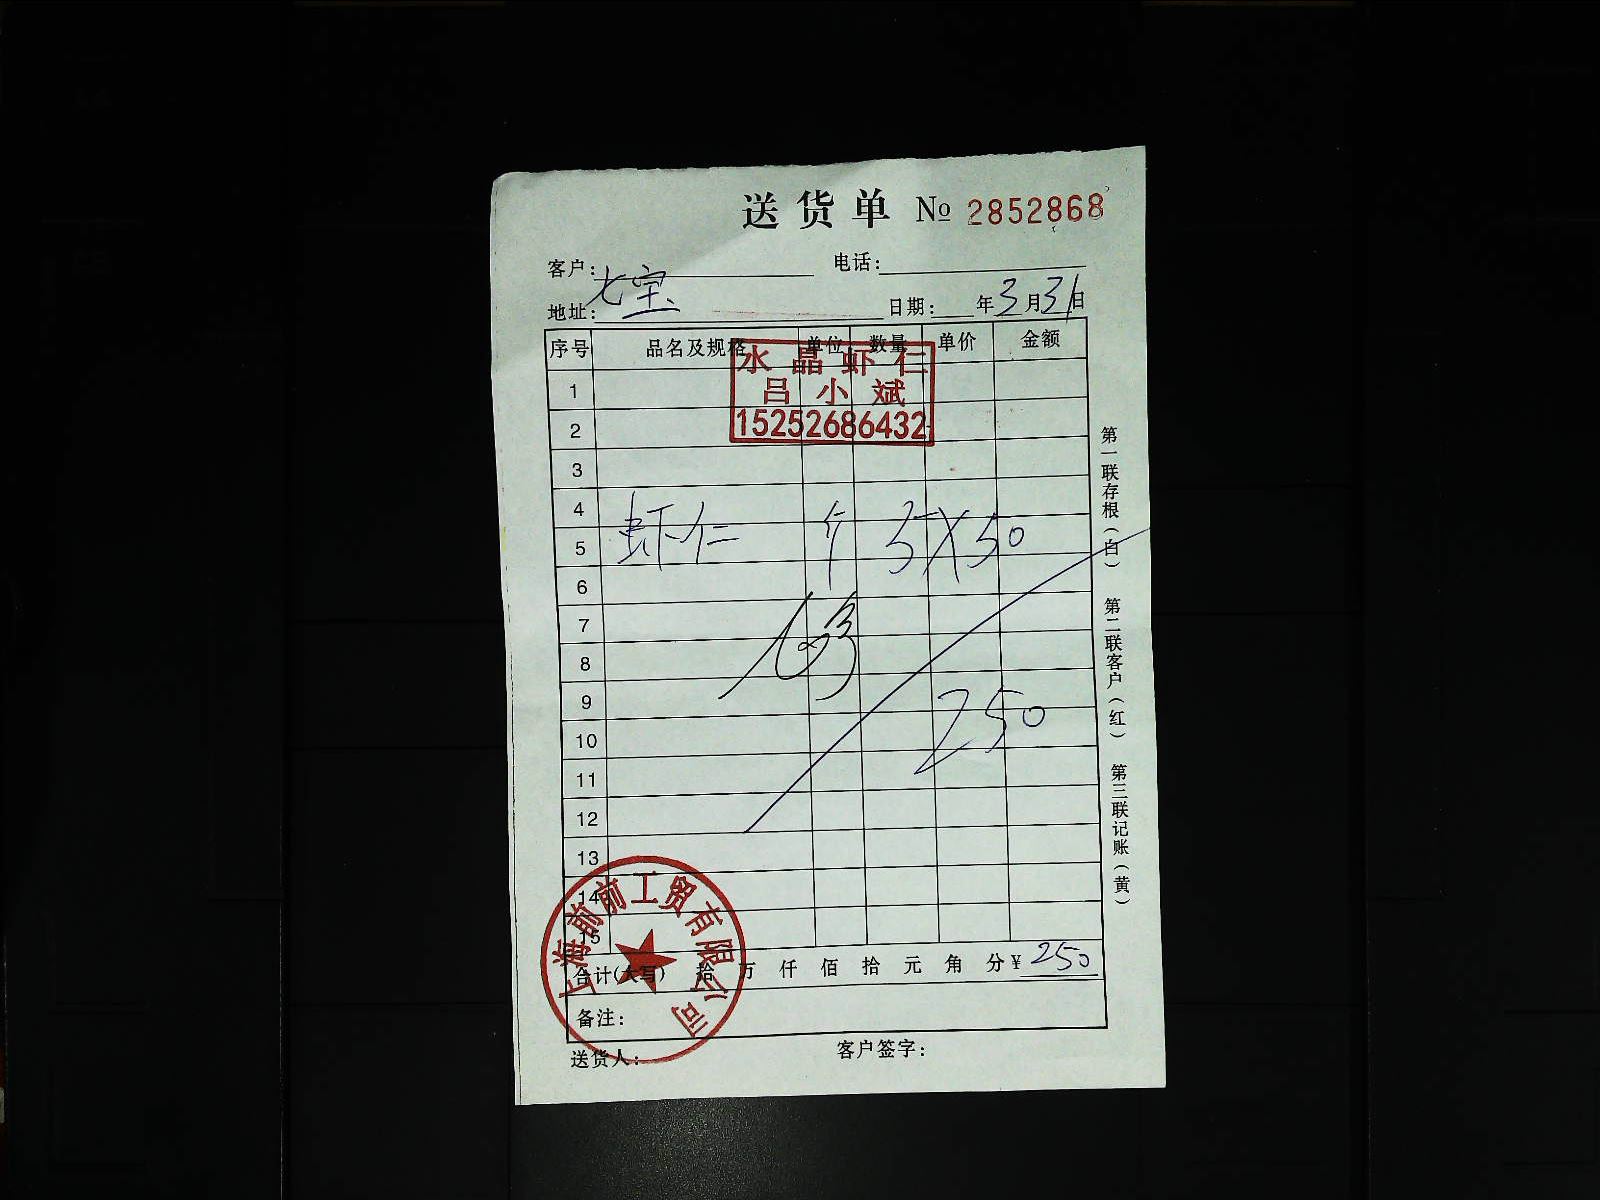 送货单 № 2852868
客户: 电话:
七宝
地址: 日期: 年3月31日
序号 品名及规格 单位 数量 单价 金额
水晶虾仁
吕小斌
15252686432
1
2
3
4
虾仁 个 5×50
5
6
7
8
9
250
10
11
12
13
14
15
合计(大写) 拾 万 仟 佰 拾 元 角 分¥250
备注:
送货人: 客户签字:
上海前前工贸有限公司
第一联存根(白) 第二联客户(红) 第三联记账(黄)